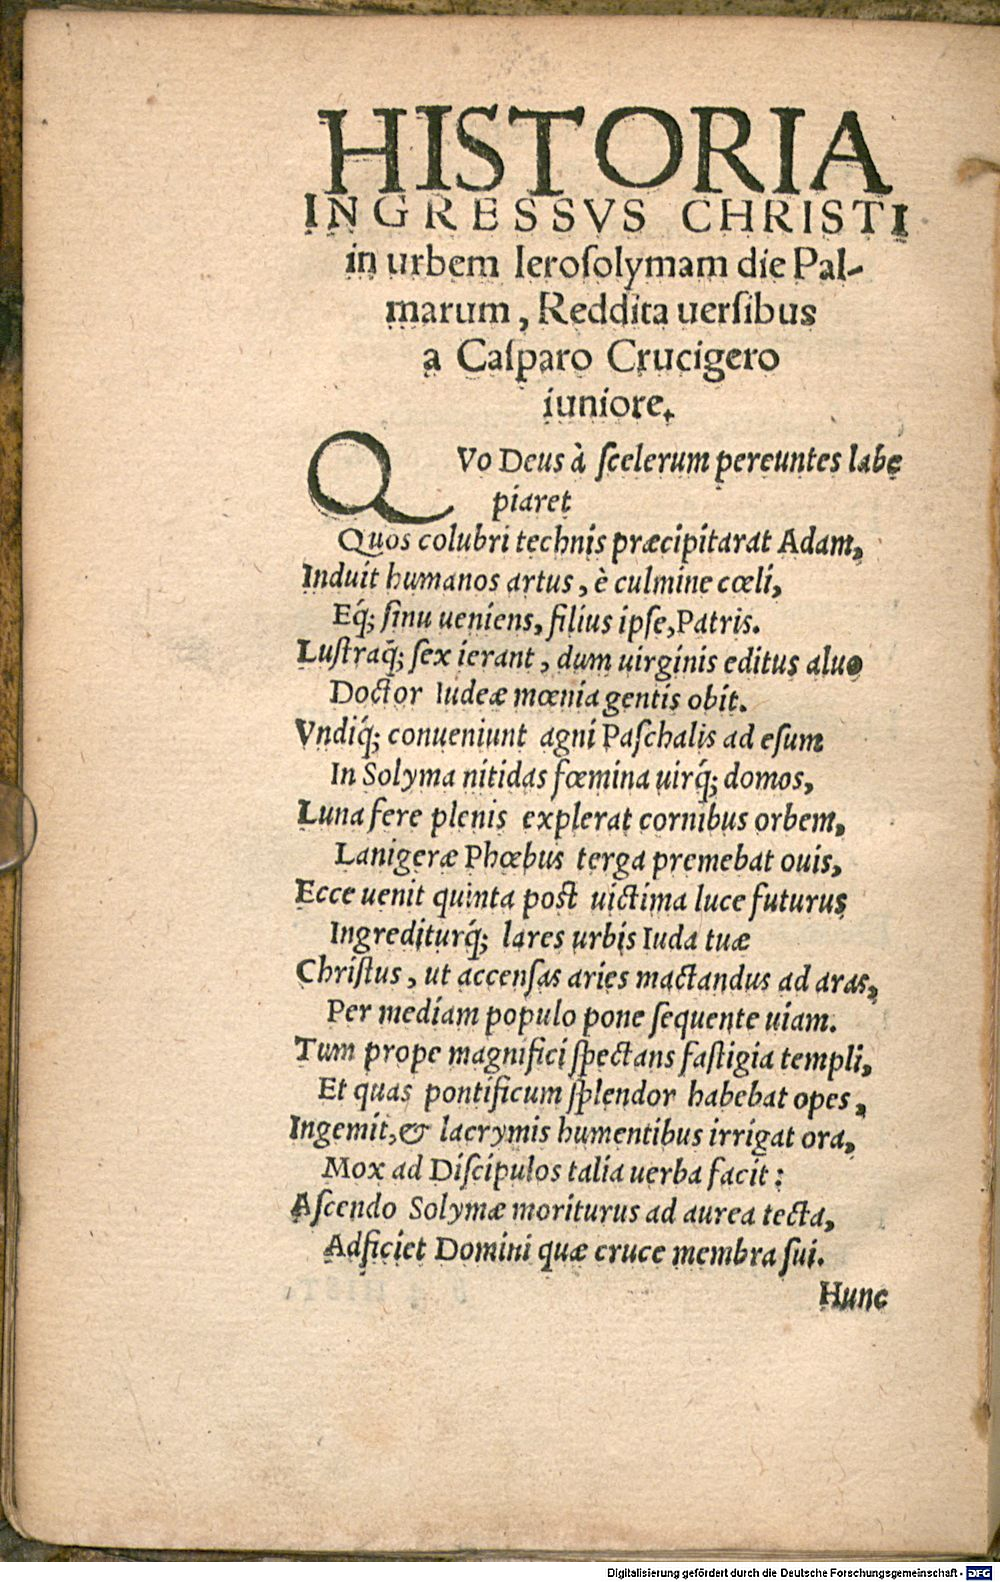 HISTORIA
INGRESSVS CHRISTI
in urbem Ieroſolymam die Pal-
marum, Reddita uerſibus
a Caſparo Crucigero
iuniore.
QVo Deus à ſcelerum pereuntes labe
piaret
Quos colubri technis præcipitarat Adam,
Induit humanos artus, è culmine cœli,
Eq́; ſinu ueniens, filius ipſe, Patris.
Luſtraq́; ſex ierant, dum uirginis editus aluo
Doctor Iudeæ mœnia gentis obit.
Vndiq́; conueniunt agni Paſchalis ad eſum
In Solyma nitidas fœmina uirq́; domos,
Luna fere plenis explerat cornibus orbem,
Lanigeræ Phœbus terga premebat ouis,
Ecce uenit quinta post uictima luce futurus
Ingrediturq́; lares urbis Iuda tuæ
Chriſtus, ut accenſas aries mactandus ad aras,
Per mediam populo pone ſequente uiam.
Tum prope magnifici ſpectans faſtigia templi,
Et quas pontificum ſplendor habebat opes,
Ingemit, & lacrymis humentibus irrigat ora,
Mox ad Diſcipulos talia uerba facit:
Aſcendo Solymæ moriturus ad aurea tecta,
Adficiet Domini quæ cruce membra ſui.
Hunc
Digitalisierung gefördert durch die Deutsche Forschungsgemeinschaft - DFG